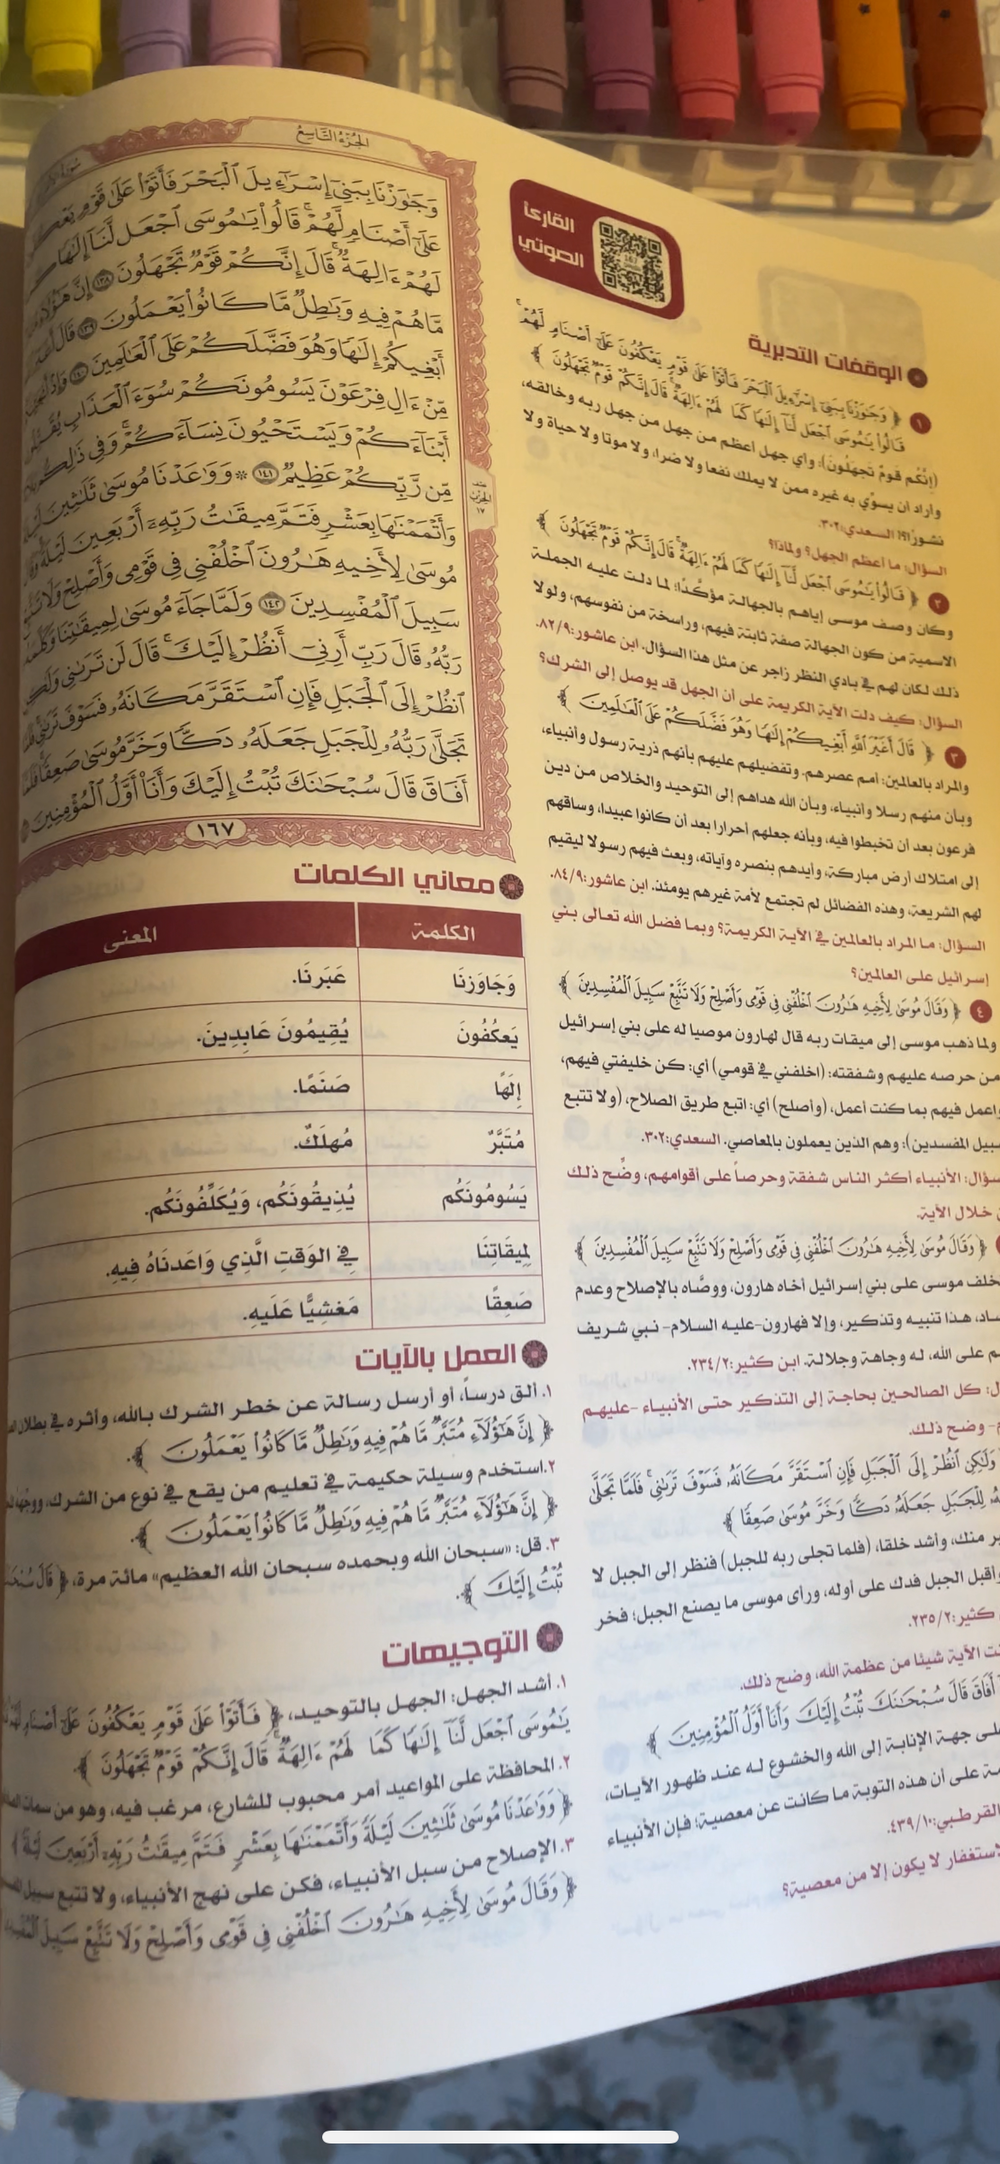 الجُزْءُ التَّاسِعُ
وَجَٰوَزْنَا بِبَنِيٓ إِسْرَٰٓءِيلَ ٱلْبَحْرَ فَأَتَوْا۟ عَلَىٰ قَوْمٍ
عَلَىٰٓ أَصْنَامٍ لَّهُمْ ۚ قَالُوا۟ يَٰمُوسَى ٱجْعَل لَّنَآ إِلَٰهًا
لَهُمْ ءَالِهَةٌ ۚ قَالَ إِنَّكُمْ قَوْمٌ تَجْهَلُونَ ١٣٨ إِنَّ
مَّا هُمْ فِيهِ وَبَٰطِلٌ مَّا كَانُوا۟ يَعْمَلُونَ ١٣٩ قَالَ
أَبْغِيكُمْ إِلَٰهًا وَهُوَ فَضَّلَكُمْ عَلَى ٱلْعَٰلَمِينَ ١٤٠
مِّنْ ءَالِ فِرْعَوْنَ يَسُومُونَكُمْ سُوٓءَ ٱلْعَذَابِ
أَبْنَآءَكُمْ وَيَسْتَحْيُونَ نِسَآءَكُمْ ۚ وَفِي
مِّن رَّبِّكُمْ عَظِيمٌ ١٤١ * وَوَٰعَدْنَا مُوسَىٰ ثَلَٰثِينَ
وَأَتْمَمْنَٰهَا بِعَشْرٍ فَتَمَّ مِيقَٰتُ رَبِّهِۦٓ أَرْبَعِينَ لَيْلَةً
مُوسَىٰ لِأَخِيهِ هَٰرُونَ ٱخْلُفْنِي فِي قَوْمِي وَأَصْلِحْ
سَبِيلَ ٱلْمُفْسِدِينَ ١٤٢ وَلَمَّا جَآءَ مُوسَىٰ لِمِيقَٰتِنَا
رَبُّهُۥ قَالَ رَبِّ أَرِنِيٓ أَنظُرْ إِلَيْكَ ۚ قَالَ لَن تَرَىٰنِي
ٱنظُرْ إِلَى ٱلْجَبَلِ فَإِنِ ٱسْتَقَرَّ مَكَانَهُۥ فَسَوْفَ تَرَىٰنِي
تَجَلَّىٰ رَبُّهُۥ لِلْجَبَلِ جَعَلَهُۥ دَكًّا وَخَرَّ مُوسَىٰ صَعِقًا
أَفَاقَ قَالَ سُبْحَٰنَكَ تُبْتُ إِلَيْكَ وَأَنَا۠ أَوَّلُ ٱلْمُؤْمِنِينَ
١٦٧
القارئ
الصوتي
الوقفات التدبرية
١ ﴿ وَجَٰوَزْنَا بِبَنِيٓ إِسْرَٰٓءِيلَ ٱلْبَحْرَ فَأَتَوْا۟ عَلَىٰ قَوْمٍ يَعْكُفُونَ عَلَىٰٓ أَصْنَامٍ لَّهُمْ ۚ
قَالُوا۟ يَٰمُوسَى ٱجْعَل لَّنَآ إِلَٰهًا كَمَا لَهُمْ ءَالِهَةٌ ۚ قَالَ إِنَّكُمْ قَوْمٌ تَجْهَلُونَ ﴾
(إنكم قومٌ تجهلون): وأي جهل أعظم من جهل من جهل ربه وخالقه،
وأراد أن يسوِّي به غيره ممن لا يملك نفعا ولا ضرا، ولا موتا ولا حياة ولا
نشورا؟! السعدي:٣٠٢.
السؤال: ما أعظم الجهل؟ ولماذا؟
٢ ﴿ قَالُوا۟ يَٰمُوسَى ٱجْعَل لَّنَآ إِلَٰهًا كَمَا لَهُمْ ءَالِهَةٌ ۚ قَالَ إِنَّكُمْ قَوْمٌ تَجْهَلُونَ ﴾
وكان وصف موسى إياهم بالجهالة مؤكَّدًا: لما دلت عليه الجملة
الاسمية من كون الجهالة صفة ثابتة فيهم، وراسخة من نفوسهم، ولولا
ذلك لكان لهم في بادي النظر زاجر عن مثل هذا السؤال. ابن عاشور:٨٢/٩.
السؤال: كيف دلت الآية الكريمة على أن الجهل قد يوصل إلى الشرك؟
٣ ﴿ قَالَ أَغَيْرَ ٱللَّهِ أَبْغِيكُمْ إِلَٰهًا وَهُوَ فَضَّلَكُمْ عَلَى ٱلْعَٰلَمِينَ ﴾
والمراد بالعالمين: أمم عصرهم. وتفضيلهم عليهم بأنهم ذرية رسول وأنبياء،
وبأن منهم رسلا وأنبياء، وبأن الله هداهم إلى التوحيد والخلاص من دين
فرعون بعد أن تخبطوا فيه، وبأنه جعلهم أحرارا بعد أن كانوا عبيدا، وساقهم
إلى امتلاك أرض مباركة، وأيدهم بنصره وآياته، وبعث فيهم رسولا ليقيم
لهم الشريعة، وهذه الفضائل لم تجتمع لأمة غيرهم يومئذ. ابن عاشور:٨٤/٩.
السؤال: ما المراد بالعالمين في الآية الكريمة؟ وبما فضل الله تعالى بني
إسرائيل على العالمين؟
٤ ﴿ وَقَالَ مُوسَىٰ لِأَخِيهِ هَٰرُونَ ٱخْلُفْنِي فِي قَوْمِي وَأَصْلِحْ وَلَا تَتَّبِعْ سَبِيلَ ٱلْمُفْسِدِينَ ﴾
ولما ذهب موسى إلى ميقات ربه قال لهارون موصيا له على بني إسرائيل
من حرصه عليهم وشفقته: (اخلفني في قومي) أي: كن خليفتي فيهم،
واعمل فيهم بما كنت أعمل، (وأصلح) أي: اتبع طريق الصلاح، (ولا تتبع
سبيل المفسدين): وهم الذين يعملون بالمعاصي. السعدي:٣٠٢.
سؤال: الأنبياء أكثر الناس شفقة وحرصاً على أقوامهم، وضِّح ذلك
خلال الآية.
﴿ وَقَالَ مُوسَىٰ لِأَخِيهِ هَٰرُونَ ٱخْلُفْنِي فِي قَوْمِي وَأَصْلِحْ وَلَا تَتَّبِعْ سَبِيلَ ٱلْمُفْسِدِينَ ﴾
خلف موسى على بني إسرائيل أخاه هارون، ووصَّاه بالإصلاح وعدم
ساد، هذا تنبيه وتذكير، وإلا فهارون-عليه السلام- نبي شريف
م على الله، له وجاهة وجلالة. ابن كثير:٢٣٤/٢.
ل: كل الصالحين بحاجة إلى التذكير حتى الأنبياء -عليهم
- وضح ذلك.
وَلَٰكِنِ ٱنظُرْ إِلَى ٱلْجَبَلِ فَإِنِ ٱسْتَقَرَّ مَكَانَهُۥ فَسَوْفَ تَرَىٰنِي ۚ فَلَمَّا تَجَلَّىٰ
لِلْجَبَلِ جَعَلَهُۥ دَكًّا وَخَرَّ مُوسَىٰ صَعِقًا ﴾
بر منك، وأشد خلقا، (فلما تجلى ربه للجبل) فنظر إلى الجبل لا
وأقبل الجبل فدك على أوله، ورأى موسى ما يصنع الجبل؛ فخر
كثير:٢٣٥/٢.
ت الآية شيئا من عظمة الله، وضح ذلك.
أَفَاقَ قَالَ سُبْحَٰنَكَ تُبْتُ إِلَيْكَ وَأَنَا۠ أَوَّلُ ٱلْمُؤْمِنِينَ ﴾
على جهة الإنابة إلى الله والخشوع له عند ظهور الآيات،
مة على أن هذه التوبة ما كانت عن معصية؛ فإن الأنبياء
القرطبي:٤٣٩/١٠.
لاستغفار لا يكون إلا من معصية؟
معاني الكلمات
الكلمة المعنى
وَجَاوَزنَا عَبَرنَا.
يَعكُفُونَ يُقِيمُونَ عَابِدِينَ.
إِلَهًا صَنَمًا.
مُتَبَّرٌ مُهلَكٌ.
يَسُومُونَكُم يُذِيقُونَكُم، وَيُكَلِّفُونَكُم.
لِمِيقَاتِنَا فِي الوَقتِ الَّذِي وَاعَدنَاهُ فِيهِ.
صَعِقًا مَغشِيًّا عَلَيهِ.
العمل بالآيات
١. ألق درساً، أو أرسل رسالة عن خطر الشرك بالله، وأثره في بطلان
﴿ إِنَّ هَٰٓؤُلَآءِ مُتَبَّرٌ مَّا هُمْ فِيهِ وَبَٰطِلٌ مَّا كَانُوا۟ يَعْمَلُونَ ﴾.
٢.استخدم وسيلة حكيمة في تعليم من يقع في نوع من الشرك،
﴿ إِنَّ هَٰٓؤُلَآءِ مُتَبَّرٌ مَّا هُمْ فِيهِ وَبَٰطِلٌ مَّا كَانُوا۟ يَعْمَلُونَ ﴾.
٣. قل: «سبحان الله وبحمده سبحان الله العظيم» مائة مرة، ﴿ قَالَ
تُبْتُ إِلَيْكَ ﴾.
التوجيهات
١. أشد الجهل: الجهل بالتوحيد، ﴿ فَأَتَوْا۟ عَلَىٰ قَوْمٍ يَعْكُفُونَ عَلَىٰٓ أَصْنَامٍ
يَٰمُوسَى ٱجْعَل لَّنَآ إِلَٰهًا كَمَا لَهُمْ ءَالِهَةٌ ۚ قَالَ إِنَّكُمْ قَوْمٌ تَجْهَلُونَ ﴾
٢. المحافظة على المواعيد أمر محبوب للشارع، مرغب فيه، وهو من سمات
﴿ وَوَٰعَدْنَا مُوسَىٰ ثَلَٰثِينَ لَيْلَةً وَأَتْمَمْنَٰهَا بِعَشْرٍ فَتَمَّ مِيقَٰتُ رَبِّهِۦٓ أَرْبَعِينَ لَيْلَةً ﴾
٣. الإصلاح من سبل الأنبياء، فكن على نهج الأنبياء، ولا تتبع سبيل
﴿ وَقَالَ مُوسَىٰ لِأَخِيهِ هَٰرُونَ ٱخْلُفْنِي فِي قَوْمِي وَأَصْلِحْ وَلَا تَتَّبِعْ سَبِيلَ